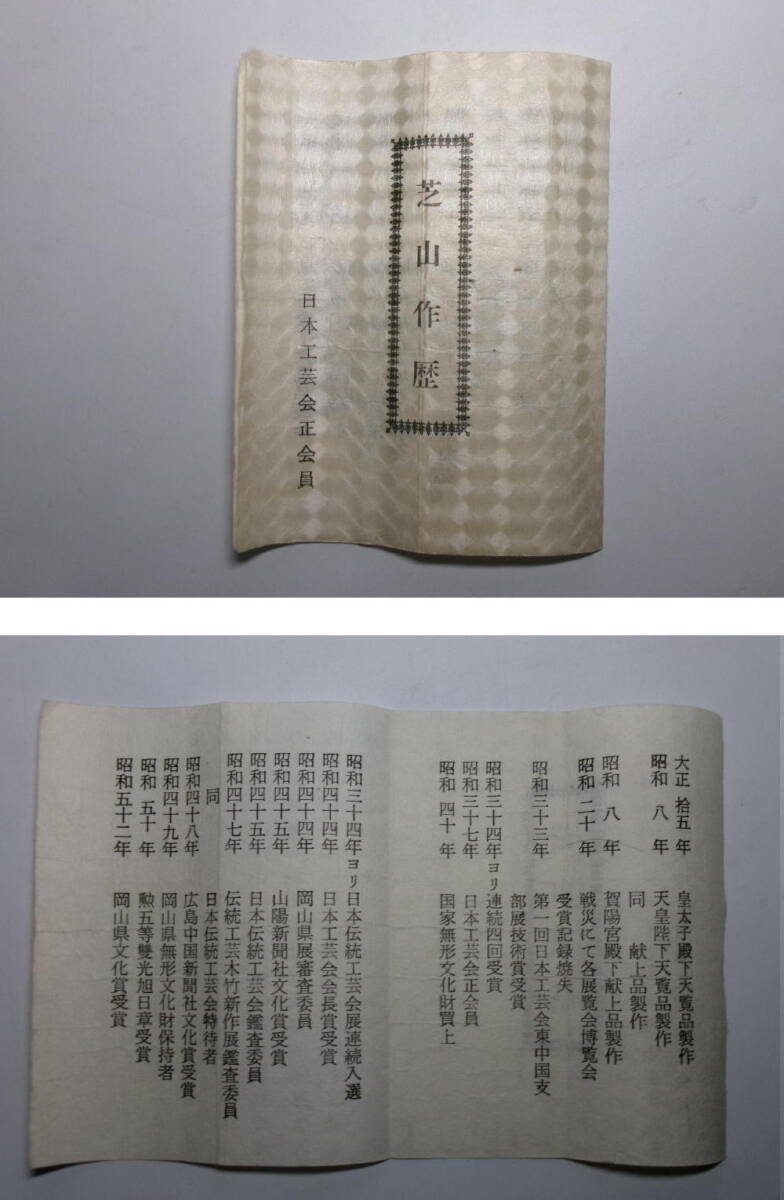 芝山作歴
日本工芸会正会員
大正 拾五 年 皇太子殿下天覧品製作
昭和 八 年 天皇陛下天覧品製作
同 献上品製作
昭和 八 年 賀陽宮殿下献上品製作
昭和 二十 年 戦災にて各展覧会博覧会
受賞記録焼失
昭和三十三年 第一回日本工芸会東中国支
部展技術賞受賞
昭和三十四年ヨリ連続四回受賞
昭和三十七年 日本工芸会正会員
昭和 四十 年 国家無形文化財買上
昭和三十四年ヨリ日本伝統工芸会展連続入選
昭和四十四年 日本工芸会会長賞受賞
昭和四十四年 岡山県展審査委員
昭和四十五年 山陽新聞社文化賞受賞
昭和四十五年 日本伝統工芸会鑑査委員
昭和四十七年 伝統工芸木竹新作展鑑査委員
同 日本伝統工芸会特待者
昭和四十八年 広島中国新聞社文化賞受賞
昭和四十九年 岡山県無形文化財保持者
昭和 五十 年 勲五等雙光旭日章受賞
昭和五十二年 岡山県文化賞受賞